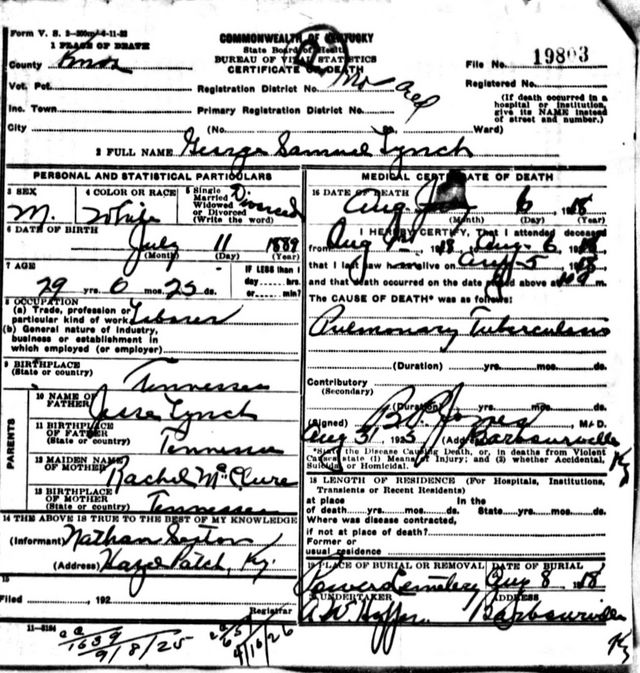 Form V. S. 3-200m-6-11-23
COMMONWEALTH OF KENTUCKY
State Board of Health
BUREAU OF VITAL STATISTICS
CERTIFICATE OF DEATH
1 PLACE OF DEATH
County Knox
File No. 19803
Vot. Pct.
Registration District No.
Registered No.
Inc. Town
Primary Registration District No.
(If death occurred in a hospital or institution, give its NAME instead of street and number.)
City
(No.
Ward)
2 FULL NAME George Samuel Lynch
PERSONAL AND STATISTICAL PARTICULARS
3 SEX
M.
4 COLOR OR RACE
White
5 Single
Married
Widowed
or Divorced
(Write the word)
Divorced
6 DATE OF BIRTH
July 11 1889
(Month) (Day) (Year)
7 AGE
29 yrs. 0 mos. 25 ds.
IF LESS than 1
day hrs.
or min.?
8 OCCUPATION
(a) Trade, profession or
particular kind of work Laborer
(b) General nature of industry,
business or establishment in
which employed (or employer)
9 BIRTHPLACE
(State or country)
Tennessee
PARENTS
10 NAME OF
FATHER
Jesse Lynch
11 BIRTHPLACE
OF FATHER
(State or country)
Tennessee
12 MAIDEN NAME
OF MOTHER
Rachel McClure
13 BIRTHPLACE
OF MOTHER
(State or country)
Tennessee
14 THE ABOVE IS TRUE TO THE BEST OF MY KNOWLEDGE
(Informant) Nathan Sexton
(Address) Hazel Patch, Ky.
15
Filed , 192
Registrar
11-3184
1639
9/8/25
4/16/26
MEDICAL CERTIFICATE OF DEATH
16 DATE OF DEATH
Aug 6 1918
(Month) (Day) (Year)
I HEREBY CERTIFY, That I attended deceased
from Aug , 1918, Aug 6, 1918
that I last saw h alive on Aug 5, 1918
and that death occurred on the date stated above at m.
The CAUSE OF DEATH* was as follows:
Pulmonary Tuberculosis
(Duration) yrs. mos. ds.
Contributory
(Secondary)
(Duration) yrs. mos. ds.
(Signed) Jones, M.D.
Aug 3, 1925 (Address) Barbourville Ky
*State the Disease Causing Death, or, in deaths from Violent
Causes state (1) Means of Injury; and (2) whether Accidental,
Suicidal or Homicidal.
18 LENGTH OF RESIDENCE (For Hospitals, Institutions,
Transients or Recent Residents)
at place In the
of death yrs. mos. ds. State yrs. mos. ds.
Where was disease contracted,
if not at place of death?
Former or
usual residence
19 PLACE OF BURIAL OR REMOVAL
DATE OF BURIAL
Cemetery Aug 8 1918
UNDERTAKER
ADDRESS
Barbourville
Ky